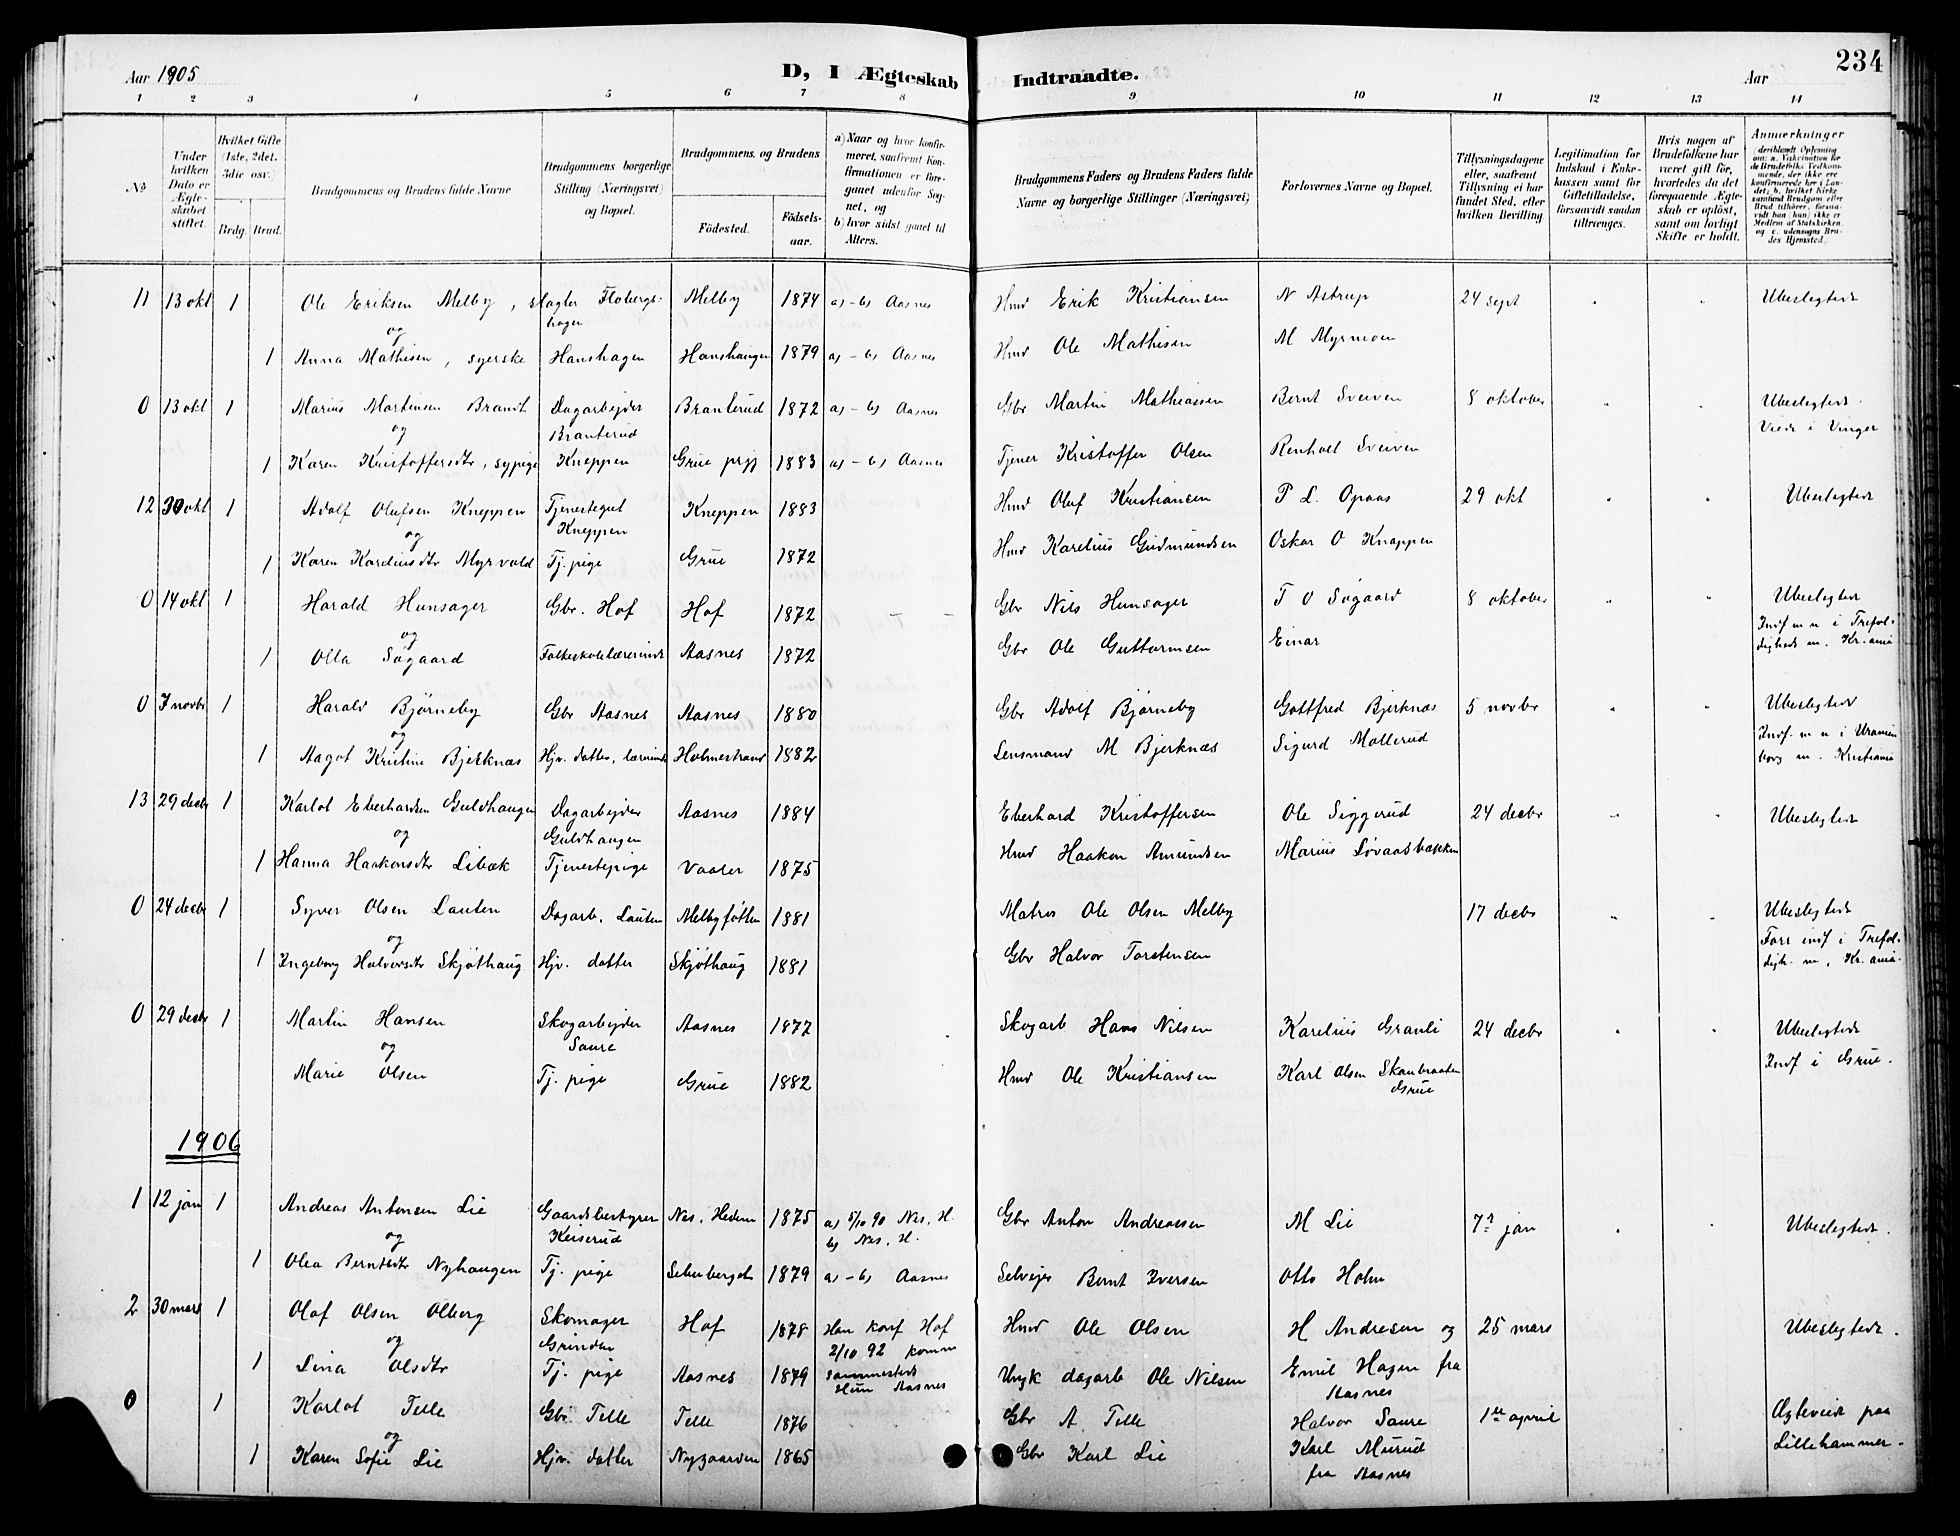 234
Aar 1905
D, I Ægteskab Indtraadte.
Aar
1 2 3 4 5 6 7 8 9 10 11 12 13 14
No
Under hvilken Dato er Ægteskabet stiftet.
Hvilket Gifte (1ste, 2det, 3die osv.)
Brdg. Brud.
Brudgommens og Brudens fulde Navne
Brudgommens borgerlige Stilling (Næringsvei) og Bopæl.
Brudgommens og Brudens
Fødested.
Fødselsaar.
a) Naar og hvor konfirmeret, saafremt Konfirmationen er foregaaet udenfor Sognet, og
b) hvor sidst gaaet til Alters.
Brudgommens Faders og Brudens Faders fulde Navne og borgerlige Stillinger (Næringsvei)
Forlovernes Navne og Bopæl.
Tillysningsdagene eller, saafremt Tillysning ei har fundet Sted, efter hvilken Bevilling.
Legitimation for Indskud i Enkekassen samt for Giftetilladelse, forsaavidt saadan tiltrænges.
Hvis nogen af Brudefolkene har været gift før, hvorledes da det foregaaende Ægteskab er opløst, samt om lovligt Skifte er holdt.
Anmerkninger
(deriblandt Oplysning om: a. Vakcination for de Brudefolks Vedkommende, der ikke ere konfirmerede her i Landet; b. hvilket Kirkesamfund Brudgom eller Brud tilhører, forsaavidt han (hun) ikke er Medlem af Statskirken, og c. udensogns Brudes Hjemsted.)
11 13 okt 1 Ole Eriksen Melby, slagter Flobergshagen Melby 1874 a) - b) Aasnes Hmd Erik Kristiansen N Astrup 24 sept Ubeslegtede
og
1 Anna Mathisen, syerske Hanshagen Hanshaugen 1879 a) - b) Aasnes Hmd Ole Mathisen M Myrmoen
0 13 okt 1 Marius Martinsen Brandt Dagarbejder Branterud Branterud 1872 a) - b) Aasnes Gbr Martin Mathiassen Bernt Sveiven 8 oktober Ubeslegtede. Viede i Vinger
og
1 Karen Kristoffersdtr, sypige Kneppen Grue prgj 1883 a) - b) Aasnes Tjener Kristoffer Olsen Renholt Sveiven
12 30 okt 1 Adolf Olufsen Kneppen Tjenestegut Kneppen Kneppen 1883 Hmd Oluf Kristiansen P L. Opaas 29 okt Ubeslegtede
og
1 Karen Kareliusdtr Myrvold Tj. pige Grue 1872 Hmd Karelius Gudmundsen Oskar O Knappen
0 14 okt 1 Harald Hunsager Gbr. Hof Hof 1872 - - Gbr Nils Hunsager T O Søgaard 8 oktober Ubeslegtede
og
1 Olla Søgaard Folkeskolelærerinde Aasnes 1872 Gbr Ole Guttormsen Einar Indf m n i Trefoldigheds m. Kr.ania
0 7 novbr 1 Harald Bjørneby Gbr Aasnes Aasnes 1880 Gbr Adolf Bjørneby Gottfred Bjerknæs 5 novbr Ubeslegtede
og
1 Aagot Kristine Bjerknæs Hjv. datter, lærerinde Holmestrand 1882 Lensmand M Bjerknæs Sigurd Møllerud Indf. m n i Uranienborg m. Kristiania
13 29 decbr 1 Karlot Eberhardsen Guldhaugen Dagarbejder Guldhaugen Aasnes 1884 Eberhard Kristoffersen Ole Siggerud 24 decbr Ubeslegtede
og
1 Hanna Haakonsdtr Libæk Tjenestepige Vaaler 1875 Hmd Haakon Amundsen Marius Løvaasbakken
0 24 decbr 1 Syver Olsen Lauten Dagarb. Lauten Melbyføtten 1881 Matros Ole Olsen Melby 17 decbr Ubeslegtede
og
1 Ingeborg Halvorsdtr Skjøthaug Hjv. datter Skjøthaug 1881 Gbr Halvor Torstensen Forr indf i Trefoldigh. m, Kr.ania.
0 29 decbr 1 Martin Hansen Skogarbejder Saure Aasnes 1877 Skogarb Hans Nilsen Karelius Granli 24 decbr Ubeslegtede
og
Marie Olsen Tj. pige Grue 1882 Hmd Ole Kristiansen Karl Olsen Skaubraaten Grue Indf i Grue.
1906
1 12 jan 1 Andreas Antonsen Lie Gaardsbestyrer Keiserud Nes. Hedem 1875 a) 5/10 90 Nes. H. b) Nes. H. Gbr Anton Andreassen M Lie 7de jan Ubeslegtede.
og
1 Olea Berntsdtr Nyhaugen Tj. pige 1879 a) - b) Aasnes Selvejer Bernt Iversen Otto Holm
2 30 mars 1 Olaf Olsen Olberg Skomager Grindar Hof 1878 Han konf Hof 2/10 92 komm Hmd Ole Olsen H Andresen og 25 mars Ubeslegtede.
og
1 Lina Olsdtr Tj. pige Aasnes 1879 sammesteds Hun Aasnes Ungk dagarb Ole Nilsen Emil Hagen fra Aasnes
0 1 Karlot Telle Gbr. Telle Telle 1876 Gbr A Telle Halvor Saure 1ste april Ægteviede paa Lillehammer.
og
1 Karen Sofie Lie Hjv. datter Nygaarden 1865 Gbr Karl Lie Karl Murud fra Aasnes